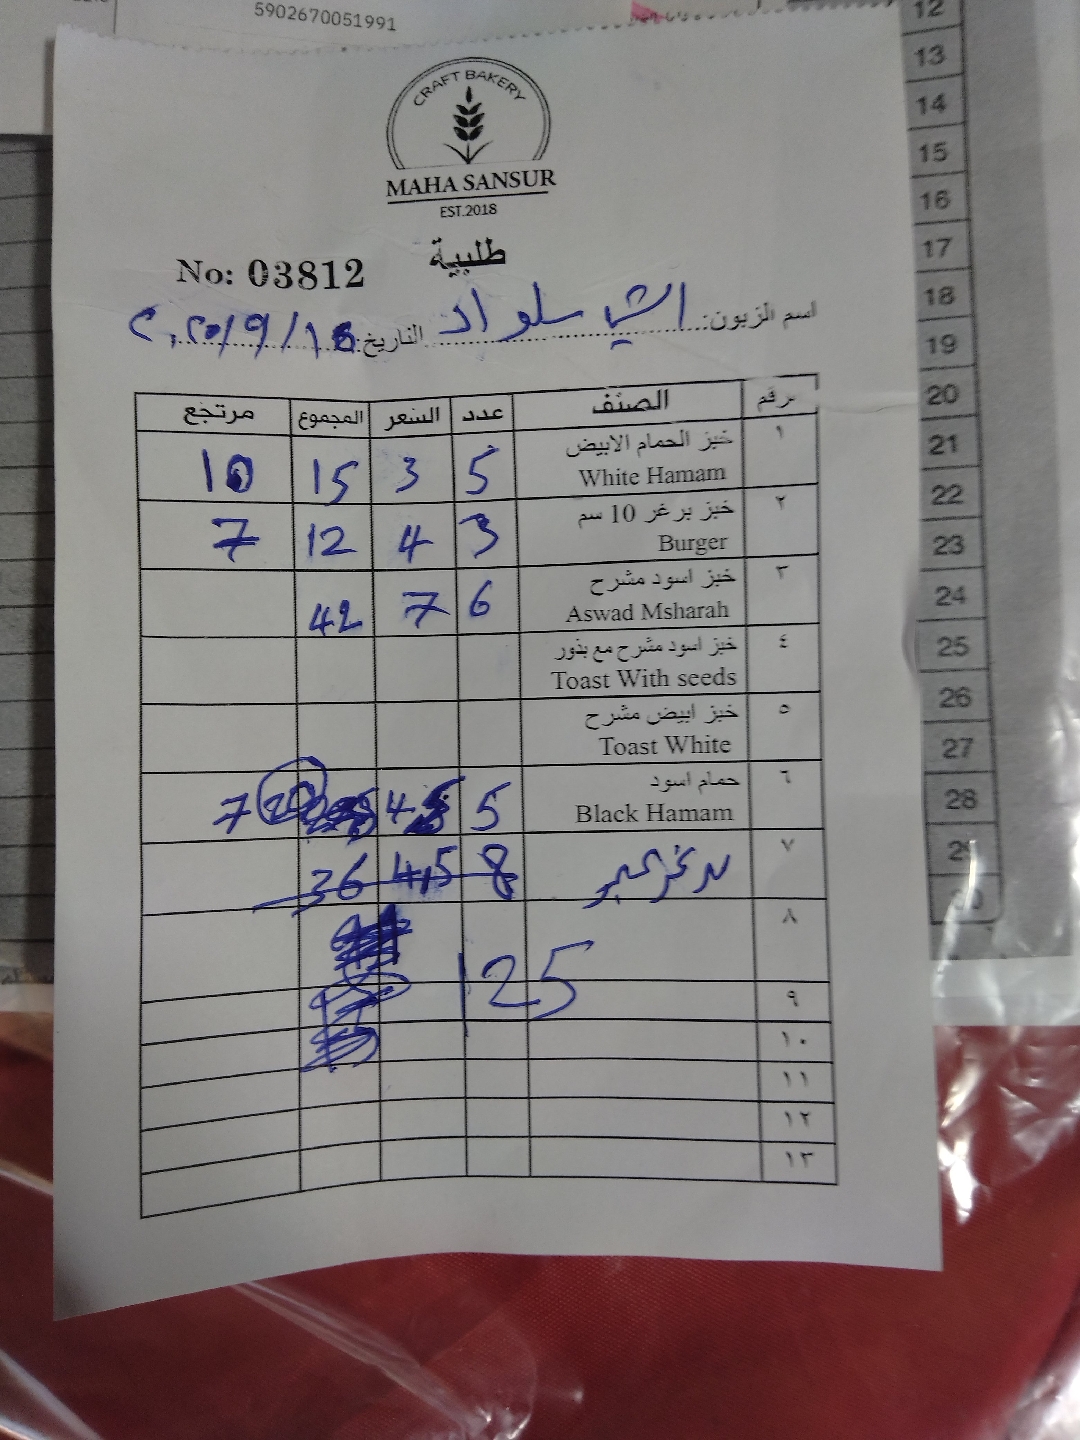 5902670051991
12
13
14
15
16
17
18
19
20
21
22
23
24
25
26
27
28
29
30
CRAFT BAKERY
MAHA SANSUR
EST.2018
طلبية
No: 03812
اسم الزبون: سلواد التاريخ:
رقم الصنف عدد السعر المجموع مرتجع
١ خبز الحمام الابيض White Hamam 5 3 15 10
٢ خبز برغر 10 سم Burger 3 4 12 7
٣ خبز اسود مشرح Aswad Msharah 6 7 42
٤ خبز اسود مشرح مع بذور Toast With seeds
٥ خبز ابيض مشرح Toast White
٦ حمام اسود Black Hamam 5 4 20 7
٧ 8 4,5 36
٨
125
٩
١٠
١١
١٢
١٣